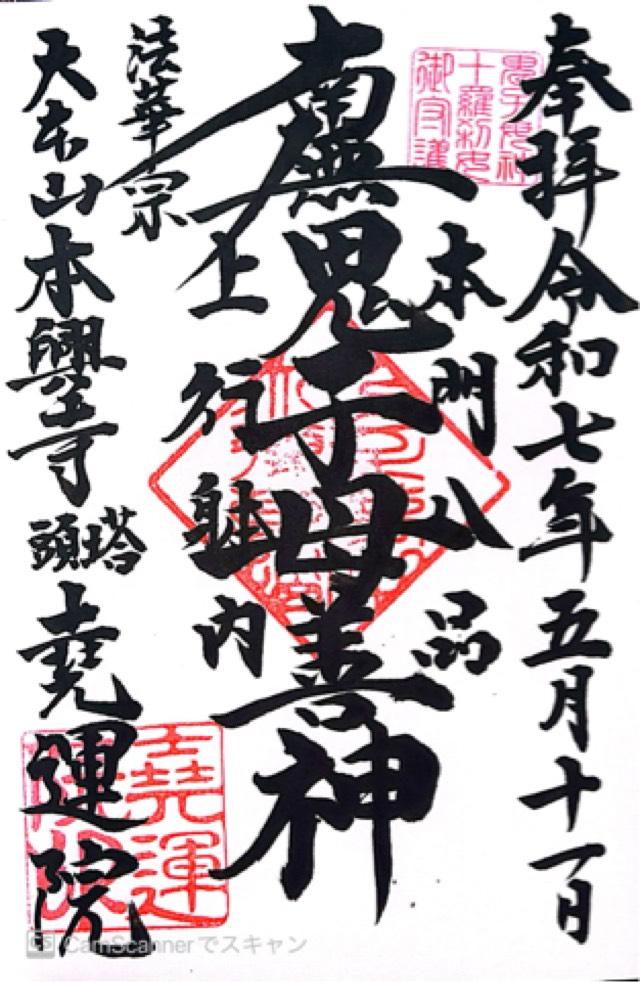 奉拝令和七年五月十一日
鬼子母神
十羅刹女
御守護
本門八品
南無鬼子母善神
上行躰内
法華宗
大本山本興寺塔頭堯運院
堯運
CS CamScannerでスキャン